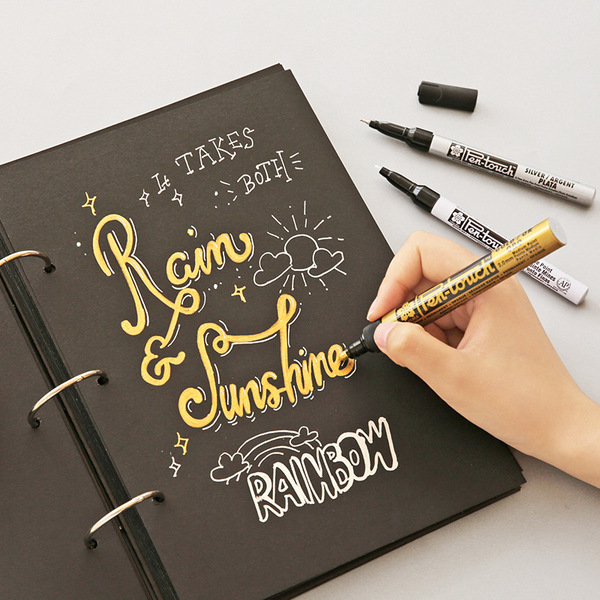 It TAKES
BOTH
Rain
&
Sunshine
RAINBOW
Pen-touch
SILVER/ARGENT
PLATA
Pen-touch
AP
Pen-touch